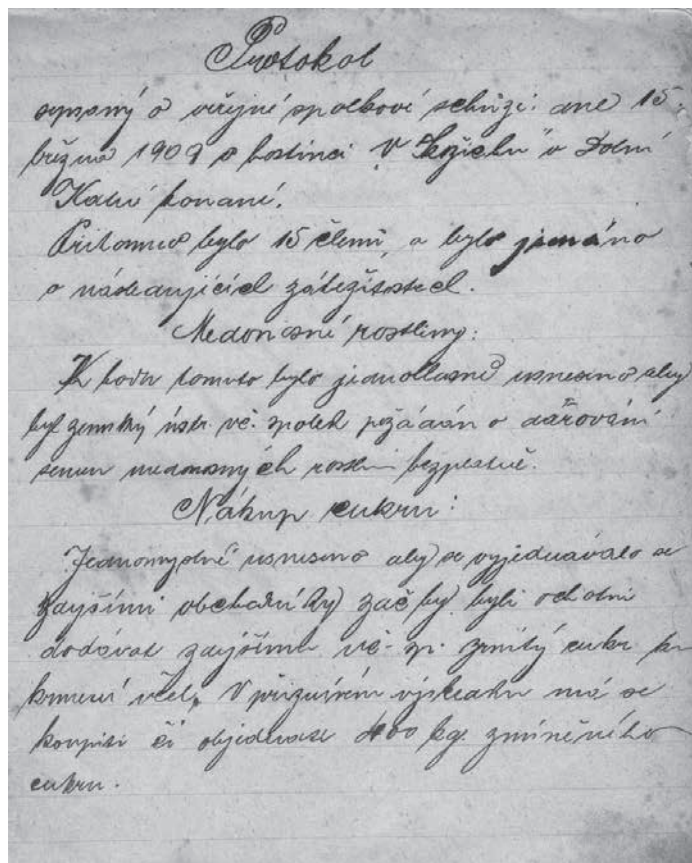 Protokol
sepsaný o veřejné spolkové schůzi dne 15.
března 1909 v hostinci „V" v Dolní
konané.
Přítomno bylo 15 členů, a bylo jednáno
o následujících záležitostech.
Medonosné rostliny:
K bodu tomuto bylo jednohlasně usneseno aby
byl zemský ústř. vč. spolek požádán o dařování
semen medonosných rostlin bezplatně.
Nákup cukru:
Jednomyslně usneseno aby se vyjednávalo se
zdejšími obchodníky zač by byli ochotni
dodávat zdejšímu vč. sp. zrnitý cukr ku
krmení včel. V příznivém výsledku má se
koupiti či objednati 400 kg. zmíněného
cukru.